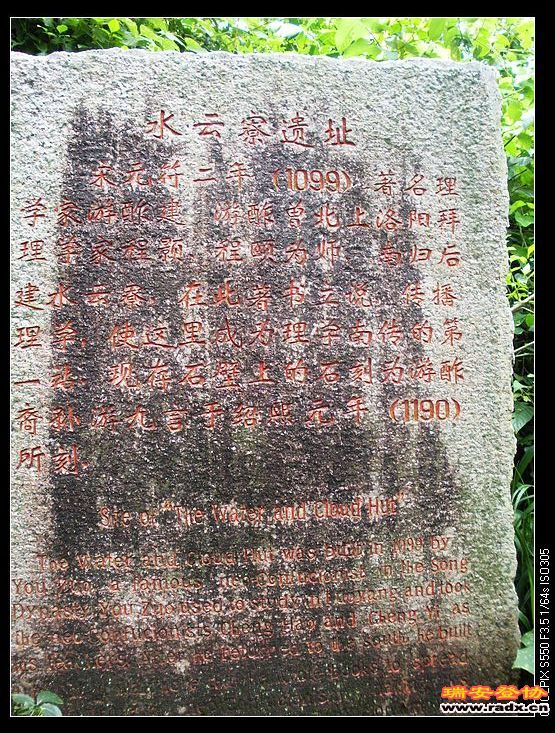 水云寮遗址
宋元符二年 (1099) 著名理
学家游酢建 游酢曾北上洛阳拜
理学家程颢、程颐为师 南归后
建水云寮，在此著书立说 传播
理学，使这里成为理学南传的第
一站 现存石壁上的石刻为游酢
裔孙游九言于绍熙元年 (1190)
所刻.
Site of "The Water and Cloud Hut"
The Water and Cloud Hut was built in 1099 by
You Zuo, a famous neo-Confucianist in the Song
Dynasty. You Zuo used to visit Luoyang and took
the neo-Confucianists Cheng Hao and Cheng Yi as
his teachers. to the south, he built
and spread
瑞安登协
www.radx.cn
COOLPIX S550 F3.5 1/64s ISO305